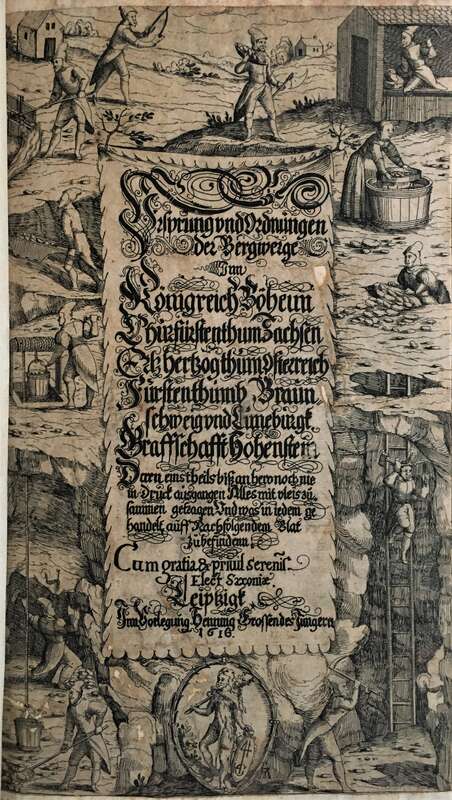 Ursprung vnd Ordnungen
der Bergwerge
Im
Königreich Böheim
Churfürstenthum Sachsen
Ertzhertzogthum Osterreich
Fürstenthumb Braun
schweig vnd Luneburgk
Graffschafft Hohenstein
Deren eins theils biß an hero noch nie
in Druck ausgangen Alles mit vleis zu
sammen getzogen Vnd was in iedem ge
handelt auff Nachfolgendem Blat
Zu befindenn.
Cum gratia & privil Sereniss:
Elect Saxoniæ
Leiptzigk
Inn Vorlegung Henning Grossen des Jüngern
1616